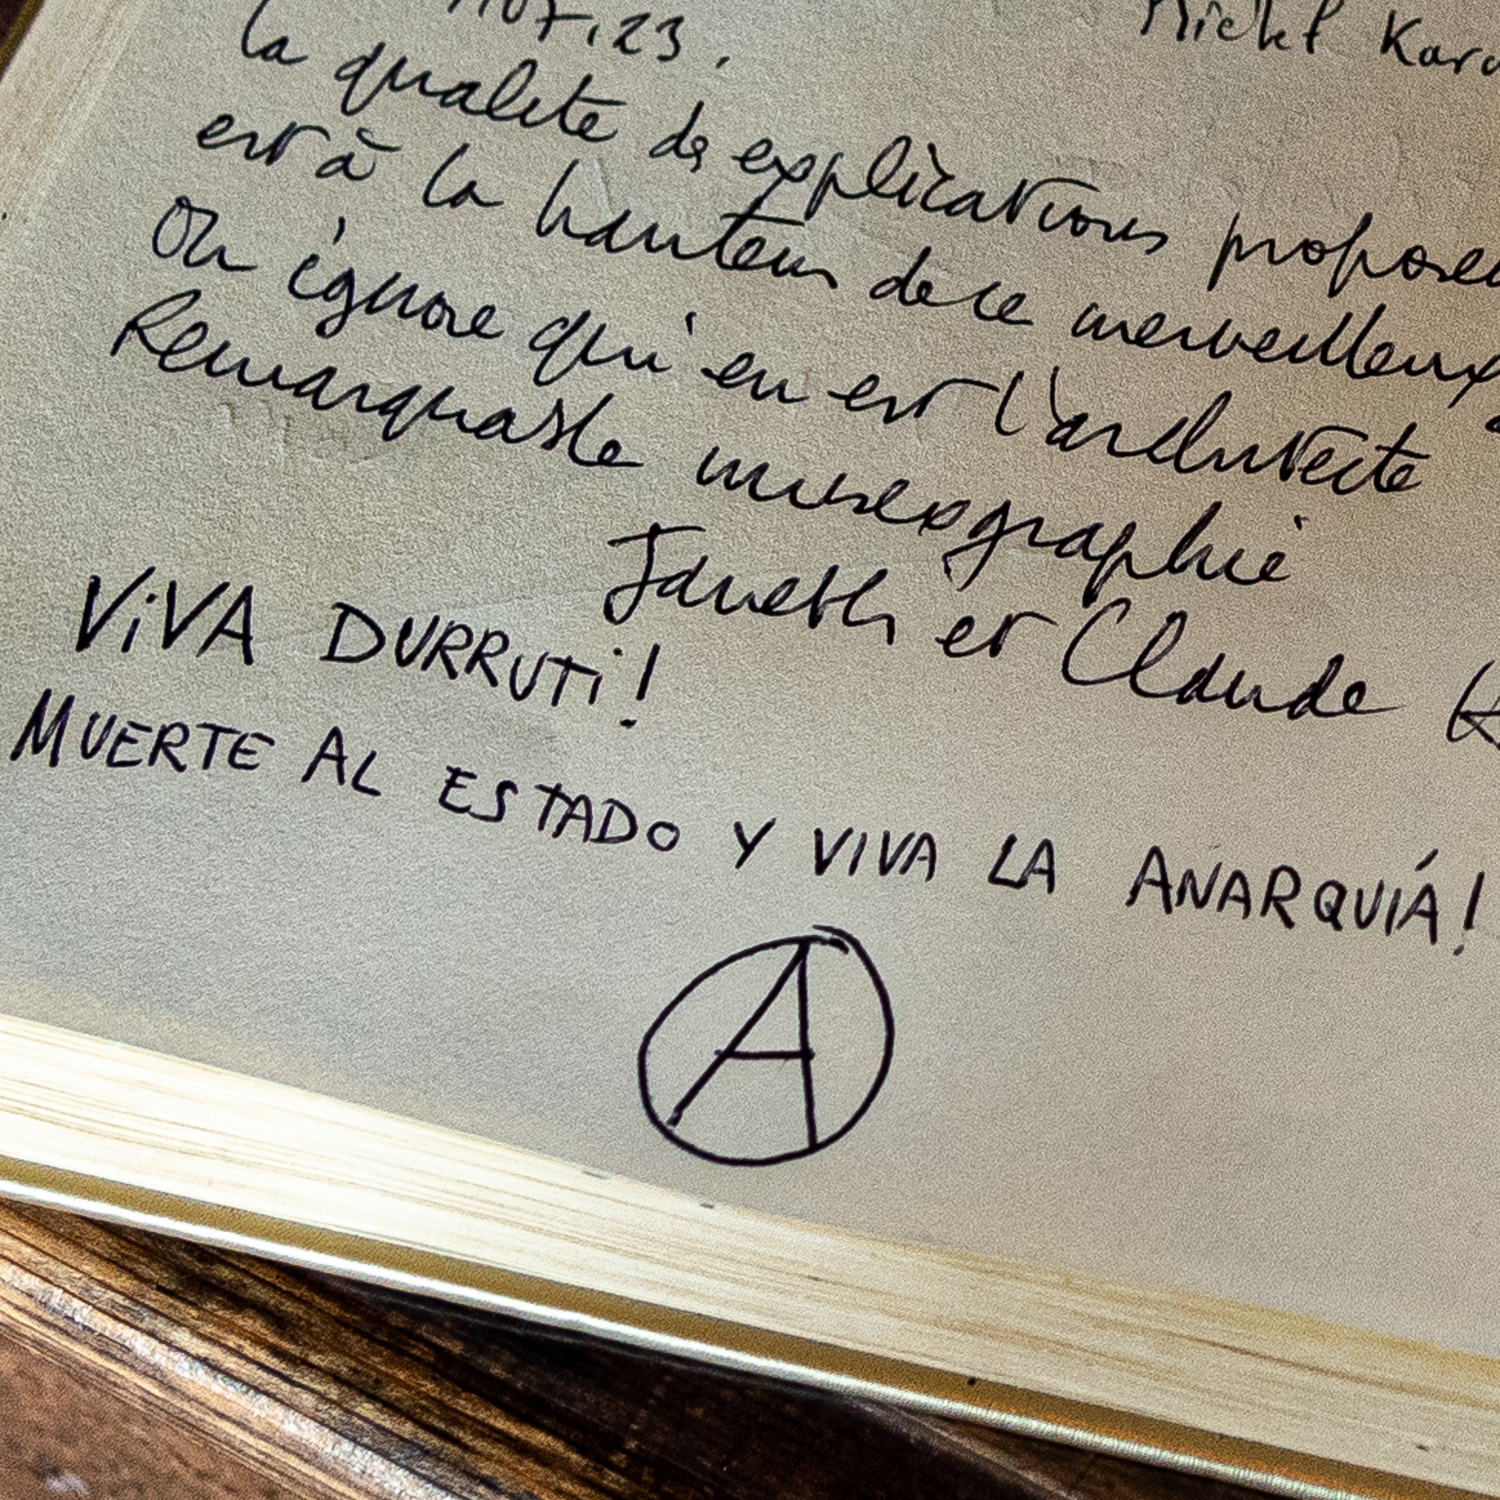 07.23.
la qualité de explications
est à la hauteur de ce merveilleux
On ignore qui en est l'architecte
Remarquable museographie
Janeth et Claude
VIVA DURRUTI!
MUERTE AL ESTADO Y VIVA LA ANARQUÍA!
A